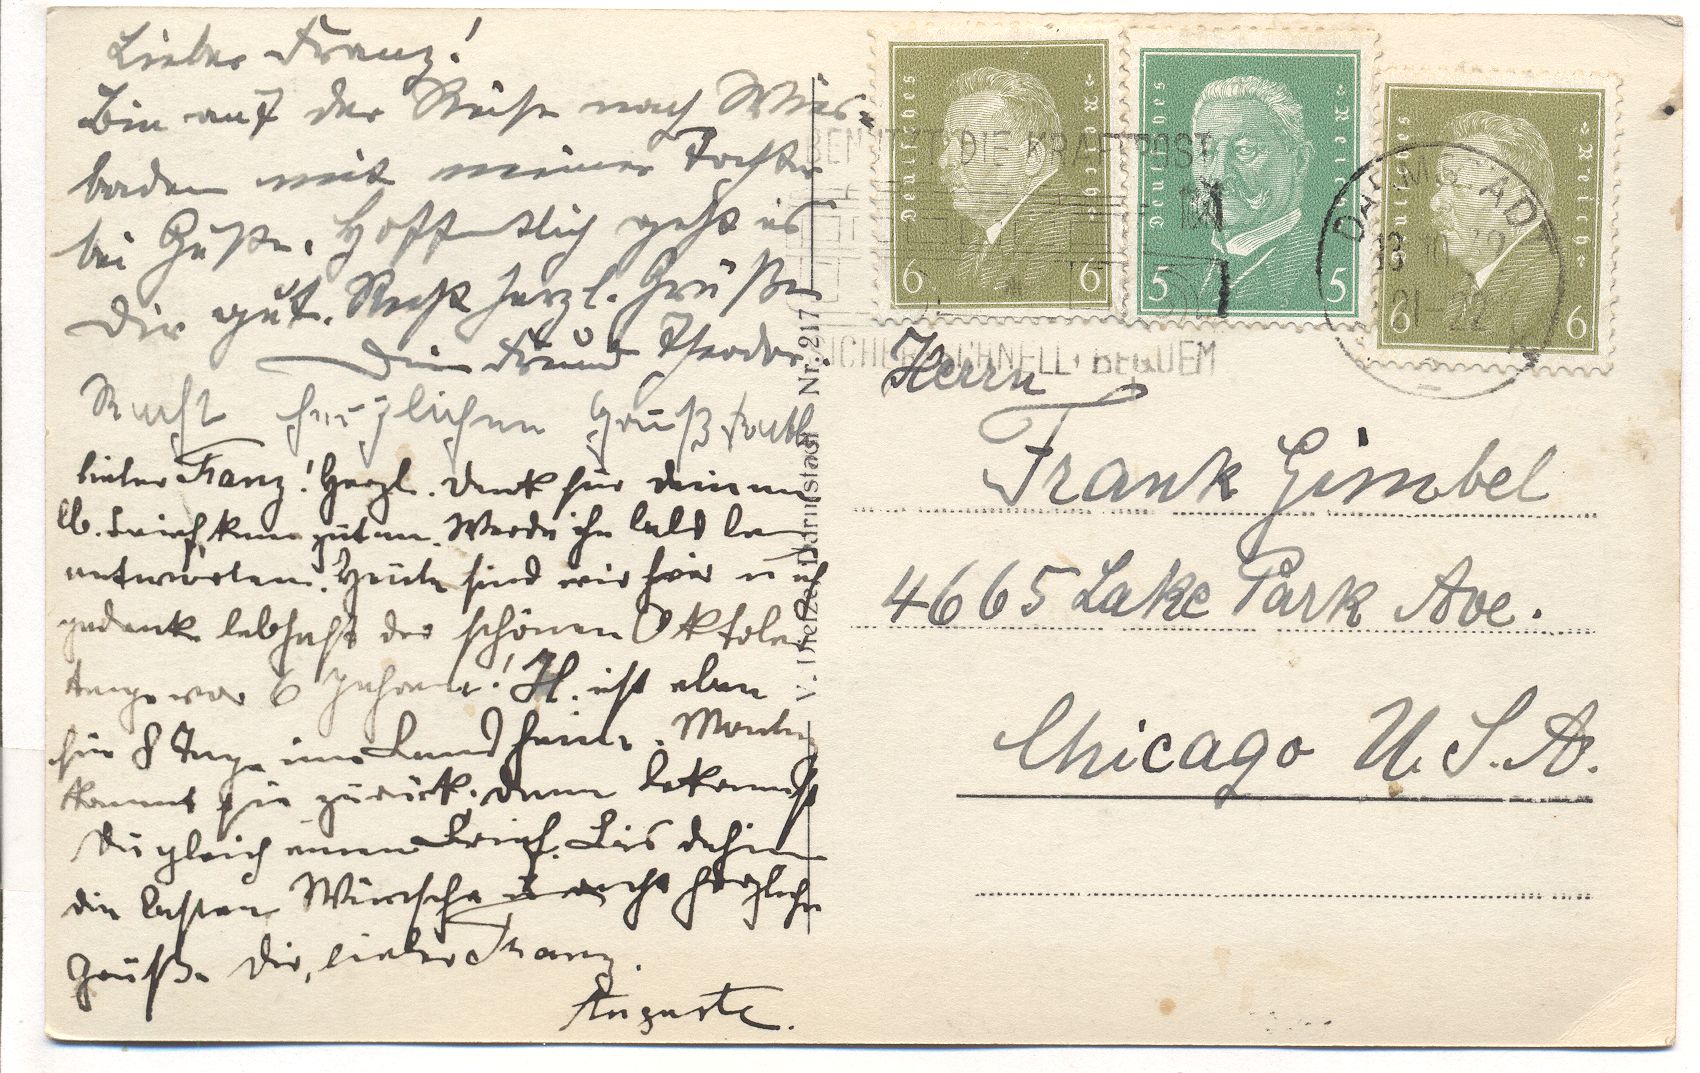 Lieber Franz!
Bin auf der Reise nach Wies-
baden mit meiner Tochter
bei Guste. Hoffentlich geht es
Dir gut. Recht herzl. Grüße
Dein Freund Theodor.
Recht herzlichen Gruß Ruth
Lieber Franz! Herzl. Dank für deinen
lb. Brief, Werde ihn bald be-
antworten. Heute sind wir hier u. ich
gedenke lebhaft der schönen Oktober
Tage vor 6 Jahren! H. ist eben
für 8 Tage im Landheim. Montag
kommt sie zurück, dann bekommst
Du gleich einen Brief. Bis dahin
die besten Wünsche u. recht herzliche
Grüße Dir, lieber Franz.
Auguste.
Darmstadt Nr. 217
Deutsches Reich
6 6
Deutsches Reich
5 5
Deutsches Reich
6 6
BENUTZT DIE KRAFTPOST
SICHER SCHNELL BEQUEM
DARMSTADT
21-22
Herrn
Frank Gimbel
4665 Lake Park Ave.
Chicago U.S.A.